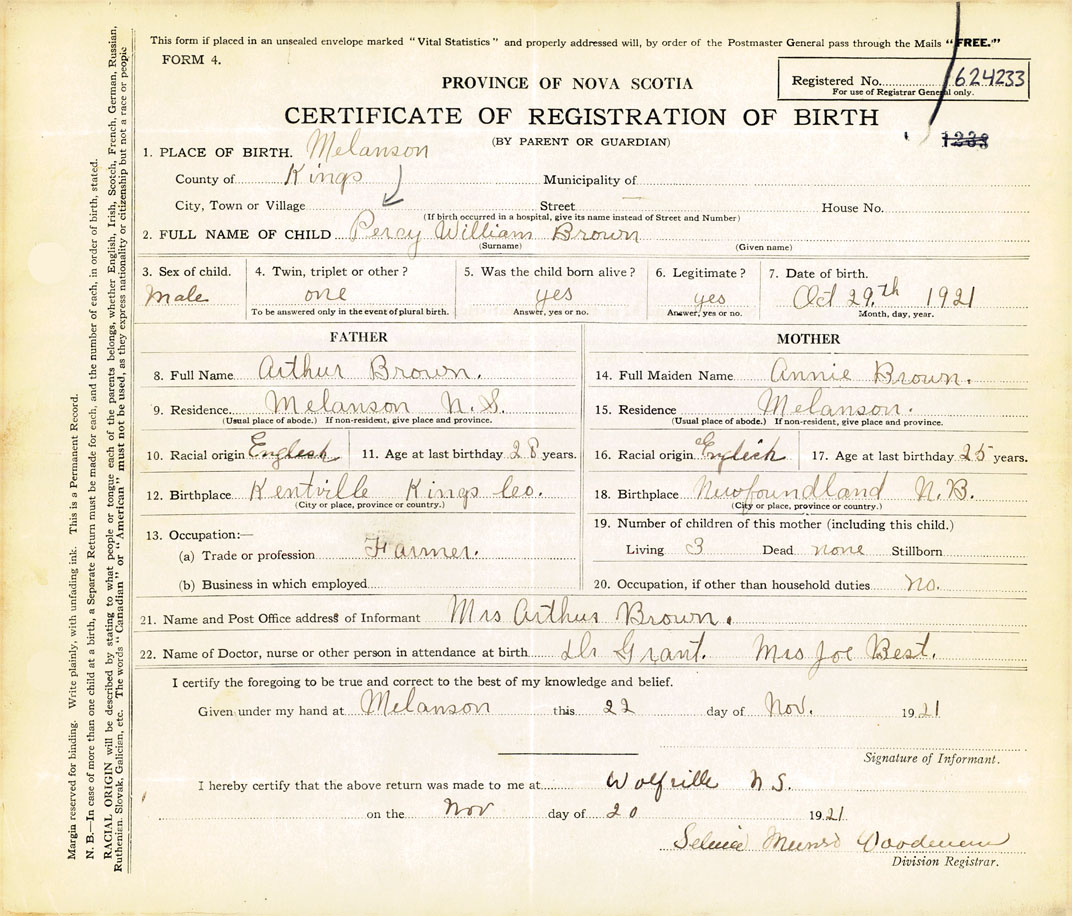 This form if placed in an unsealed envelope marked "Vital Statistics" and properly addressed will, by order of the Postmaster General pass through the Mails "FREE."
FORM 4.
Registered No. 1624233
For use of Registrar General only.
PROVINCE OF NOVA SCOTIA
CERTIFICATE OF REGISTRATION OF BIRTH
(BY PARENT OR GUARDIAN)
1. PLACE OF BIRTH. Melanson
County of Kings Municipality of
City, Town or Village Street House No.
(If birth occurred in a hospital, give its name instead of Street and Number)
2. FULL NAME OF CHILD Percy William Brown
(Surname) (Given name)
3. Sex of child. 4. Twin, triplet or other? 5. Was the child born alive? 6. Legitimate? 7. Date of birth.
Male one yes yes Oct 29th 1921
To be answered only in the event of plural birth. Answer, yes or no. Answer, yes or no. Month, day, year.
FATHER
8. Full Name Arthur Brown.
9. Residence. Melanson N.S.
(Usual place of abode.) If non-resident, give place and province.
10. Racial origin English 11. Age at last birthday 28 years.
12. Birthplace Kentville Kings Co.
(City or place, province or country.)
13. Occupation:—
(a) Trade or profession Farmer.
(b) Business in which employed
MOTHER
14. Full Maiden Name Annie Brown.
15. Residence Melanson.
(Usual place of abode.) If non-resident, give place and province.
16. Racial origin English 17. Age at last birthday 25 years.
18. Birthplace Newfoundland N.B.
(City or place, province or country.)
19. Number of children of this mother (including this child.)
Living 3 Dead none Stillborn
20. Occupation, if other than household duties no.
21. Name and Post Office address of Informant Mrs Arthur Brown.
22. Name of Doctor, nurse or other person in attendance at birth Dr Grant. Mrs Joe Best.
I certify the foregoing to be true and correct to the best of my knowledge and belief.
Given under my hand at Melanson this 22 day of Nov. 1921
Signature of Informant.
I hereby certify that the above return was made to me at Wolfville N.S.
on the Nov day of 20 1921.
Munro
Division Registrar.
Margin reserved for binding. Write plainly, with unfading ink. This is a Permanent Record.
N. B.—In case of more than one child at a birth, a Separate Return must be made for each, and the number of each, in order of birth, stated.
RACIAL ORIGIN will be described by stating to what people or tongue each of the parents belongs, whether English, Irish, Scotch, French, German, Russian,
Ruthenian, Slovak, Galician, etc. The words "Canadian" or "American" must not be used, as they express nationality or citizenship but not a race or people